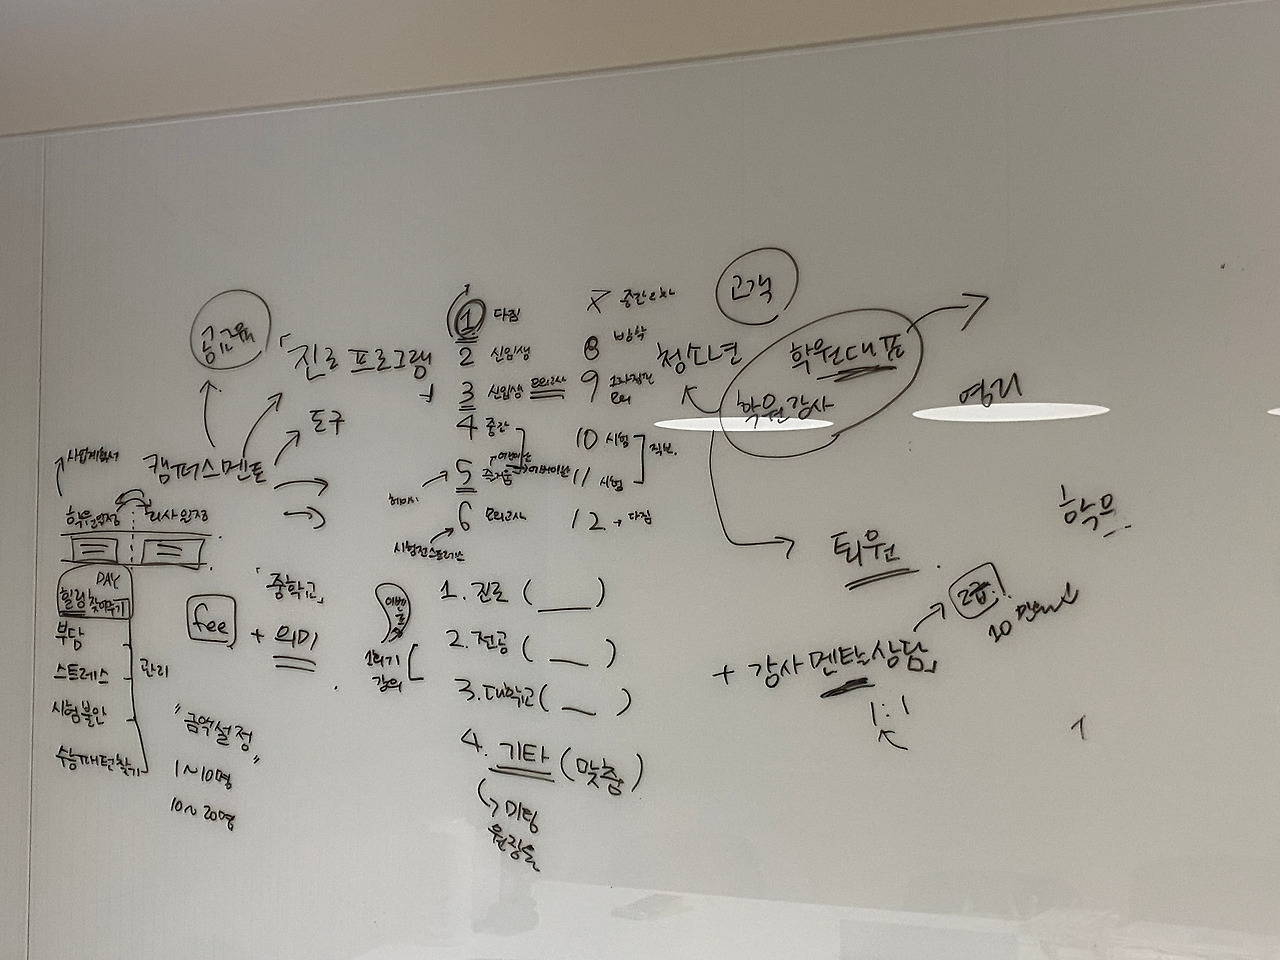 공교육
「진로 프로그램
도구
캠퍼스멘토
사업계획서
학원입장
회사입장
DAY
힐링 찾아주기
부담
스트레스
관리
시험불안
수능패턴찾기
fee
「중학교」
+ 의미
"금액설정"
1~10명
10~20명
1 다짐
2 신입생
3 신입생 모의고사
4 중간
5 즐거움
6 모의고사
시험전스트레스
8 방학
9
10 시험
11 시험
12 → 다짐
1회기
강의
1. 진로 ( )
2. 전공 ( )
3. 대학교 ( )
4. 기타 (맞춤)
미팅
원장님
고객
청소년
학원대표
학원강사
영리
퇴원
+ 강사멘탈상담」
1:1
2급